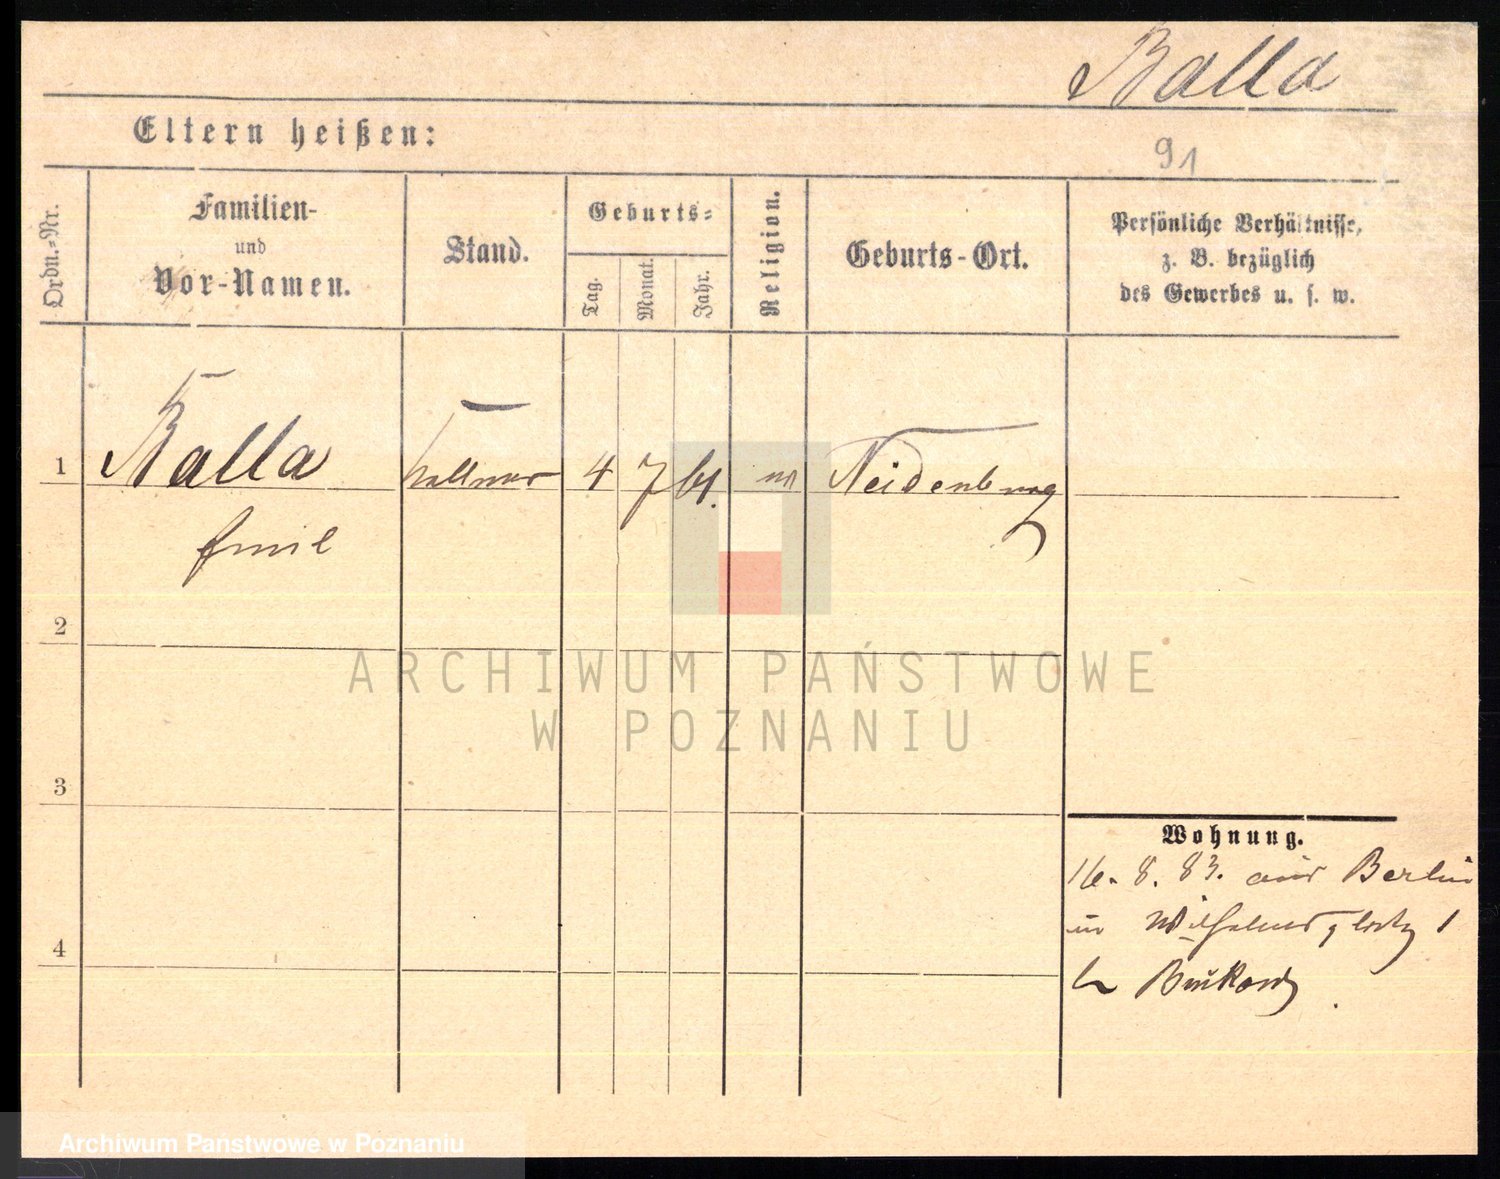 Balla
Eltern heißen:
91
Ordn.-Nr.
Familien-
und
Vor-Namen.
Stand.
Geburts-
Tag.
Monat.
Jahr.
Religion.
Geburts-Ort.
Persönliche Verhältnisse,
z. B. bezüglich
des Gewerbes u. s. w.
1 Balla Kellner 4 7 61. Neidenburg
Emil
2
ARCHIWUM PAŃSTWOWE
W POZNANIU
3
Wohnung.
16. 8. 83. aus Berlin
in Wilhelmsplatz 1
4
Archiwum Państwowe w Poznaniu